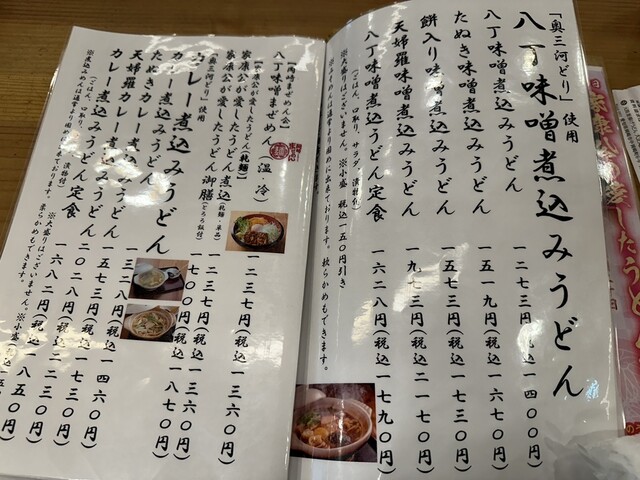 「奥三河どり」使用
八丁味噌煮込みうどん
八丁味噌煮込みうどん 一二七三円(税込一四〇〇円)
たぬき味噌煮込みうどん 一五一九円(税込一六七〇円)
餅入り味噌煮込みうどん 一五七三円(税込一七三〇円)
天婦羅味噌煮込みうどん 一九七三円(税込二一七〇円)
八丁味噌煮込みうどん定食 一六二八円(税込一七九〇円)
※大盛りはございません。※小盛 税込一五〇円引き
【岡崎まぜめん会】
八丁味噌まぜめん(温・冷) 一二三七円(税込一三六〇円)
家康公が愛したうどん煮込 一二三七円(税込一三六〇円)
家康公が愛したうどん御膳(とろろ飯付) 一七〇〇円(税込一八七〇円)
「奥三河どり」使用
カレー煮込みうどん
カレー煮込みうどん 一三二八円(税込一四六〇円)
たぬきカレー煮込みうどん 一五七三円(税込一七三〇円)
天婦羅カレー煮込みうどん 二〇二八円(税込二二三〇円)
カレー煮込みうどん定食 一六八二円(税込一八五〇円)